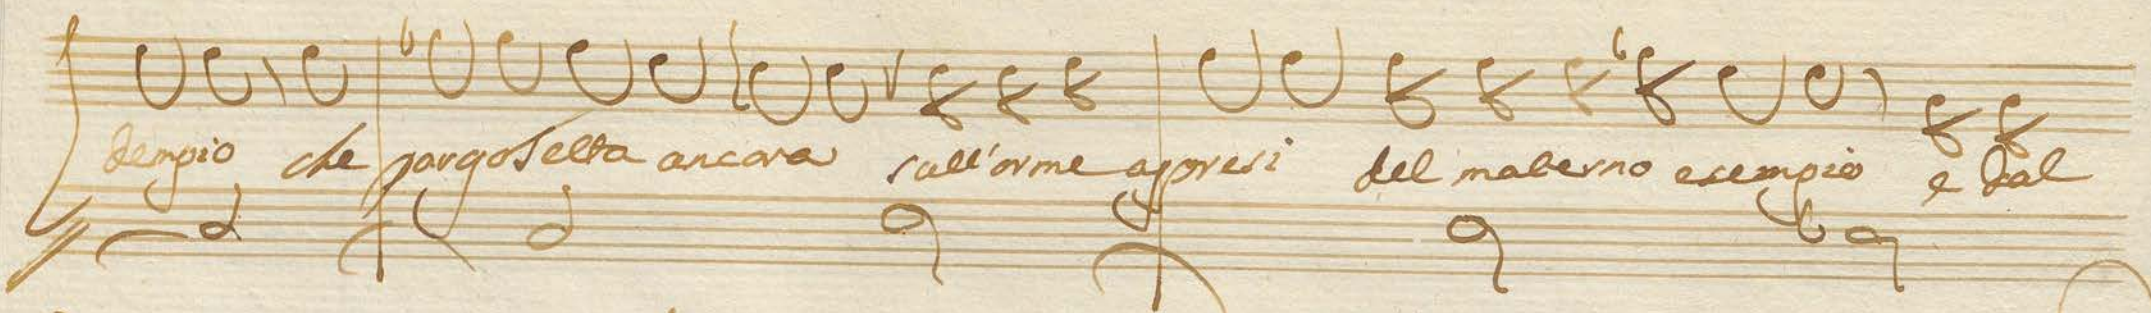 dempio che pargoletta ancora sull'orme appresi del materno esempio e dal